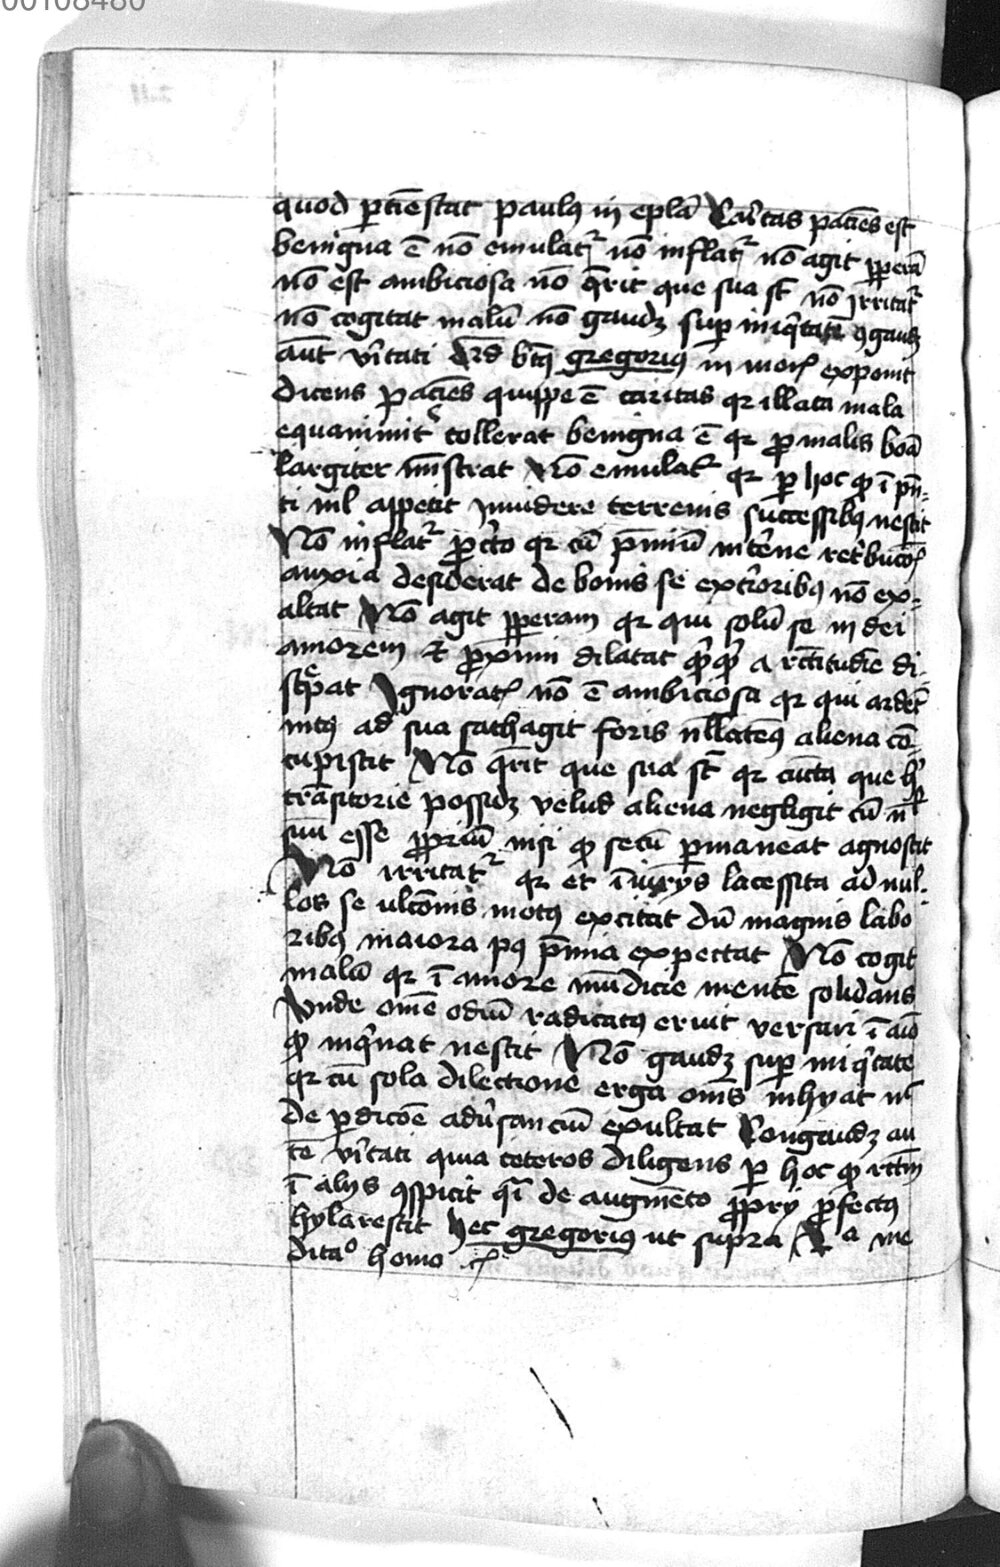 00108480
quod ꝑtiēstat paulꝰ in eplā Caritas paciēs est
benigna ē nō emulatr nō inflatr nō agit ꝑperā
nō est ambiciosa nō q̄rit que sua st nō irritatr
nō cogitat malū nō gaudꝫ suꝑ iniq̄tate ꝯgaudꝫ
aūt v̄itati Qđ btꝰ gregorius in mor exponit
dicens paciēs quippe ē caritas qr illata mala
equanimitr tollerat benigna ē qr ꝓ malis bōa
largiter mīstrat Nō emulatr qr ꝑ hoc ꝙ ī pn̄-
ti nil appetit invidere terrenis successibꝰ nescit
Nō inflatr qr cū p̄miū int̄ne ret̄bucōis
anxia desiderat de bonis se ext̄ioribꝰ nō ex-
altat Nō agit ꝑperam qr qui solū se in dei
amorem et ꝓximi dilatat a rc̄titudīe di
screpat Ignorat nō ē ambiciosa qr qui ardētr
intꝰ ad sua sathagit foris nllatenꝰ aliena cō-
cupiscit Nō q̄rit que sua st qr cūcta que h̄
trāsitorie possidꝫ velud aliena negligit cū nl
suū esse ꝓpriū nisi ꝙ secū ꝑmaneat agnoscit
Nō irritatr qr et īiuriis lacessita ad nul-
los se ulcōnis motꝰ excitat dū magnis labo
ribꝰ maiora pꝰ p̄mia expectat Nō cogit
malū qr ī amore mūdicie mentē solidans
Unde om̄e odiū radicatꝰ eruit versari ī aīo
ꝙ inq̄nat nescit Nō gaudꝫ suꝑ iniq̄tate
qr cū sola dilectione erga om̄s inhyat nc
de ꝑdicōe adv̄santiū exultat Congaudꝫ au
tē v̄itati quia ceteros diligens ꝑ hoc ꝙ rc̄tm
ī aliis ꝯspicit q̄si de augmēto ꝓprii ꝓfectꝰ
hylarescit hec gregorius ut supra me
dita homo